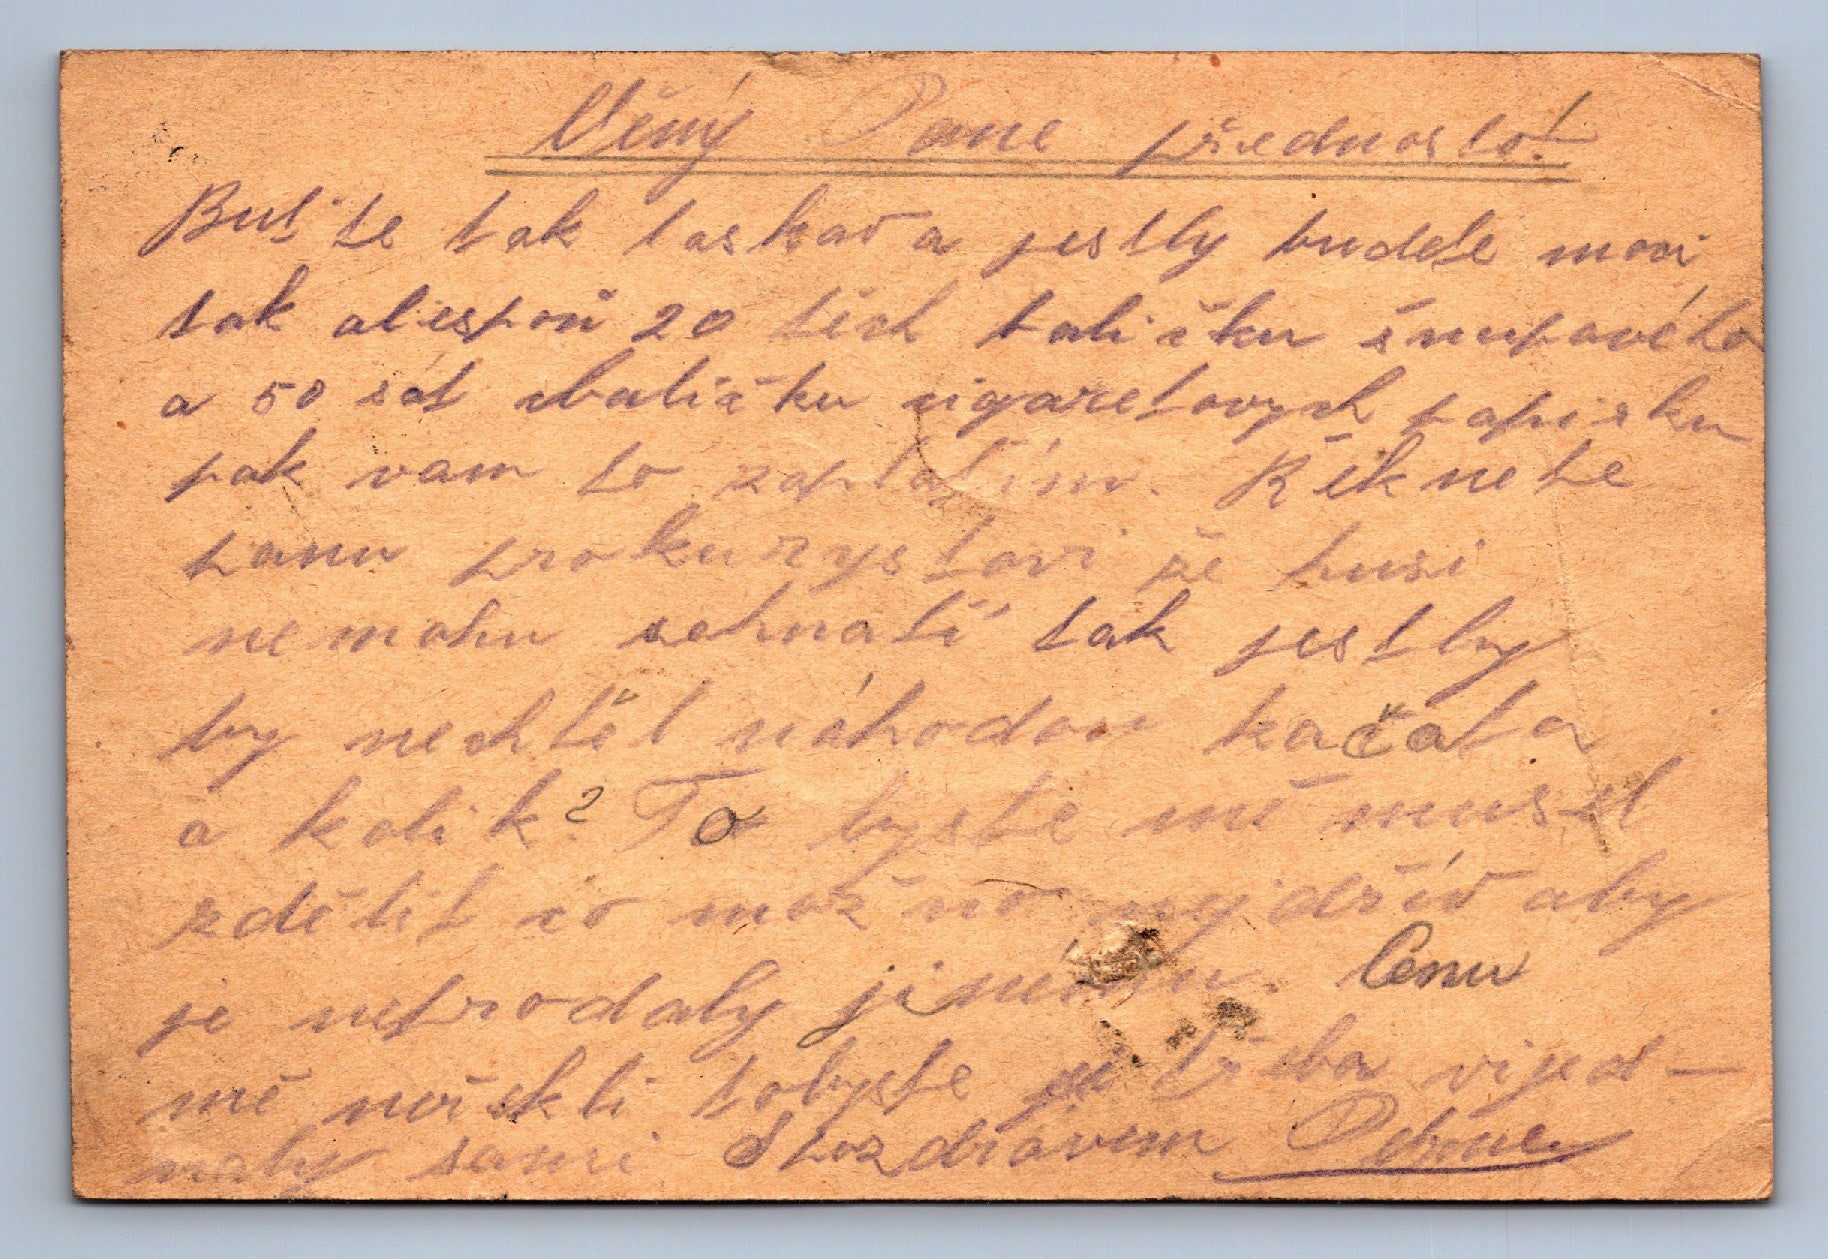 Věný Pane přednosto!
Buť te tak laskav a jestly budete moci
tak alespoň 20 těch baličku šnupavého
a 50 sát baličku cigaretovych papisku
pak vam to zaplatím. Řěknete
panu prokurystovi že husi
nemohu sehnatí tak jestly
by nechtěl náhodou kačata
a kolik? To byste mě musel
zdělit co možno nejdřív aby
je neprodaly jinému. Cenu
mě neřekli tobyste je třeba vijed-
naly sami S pozdravem